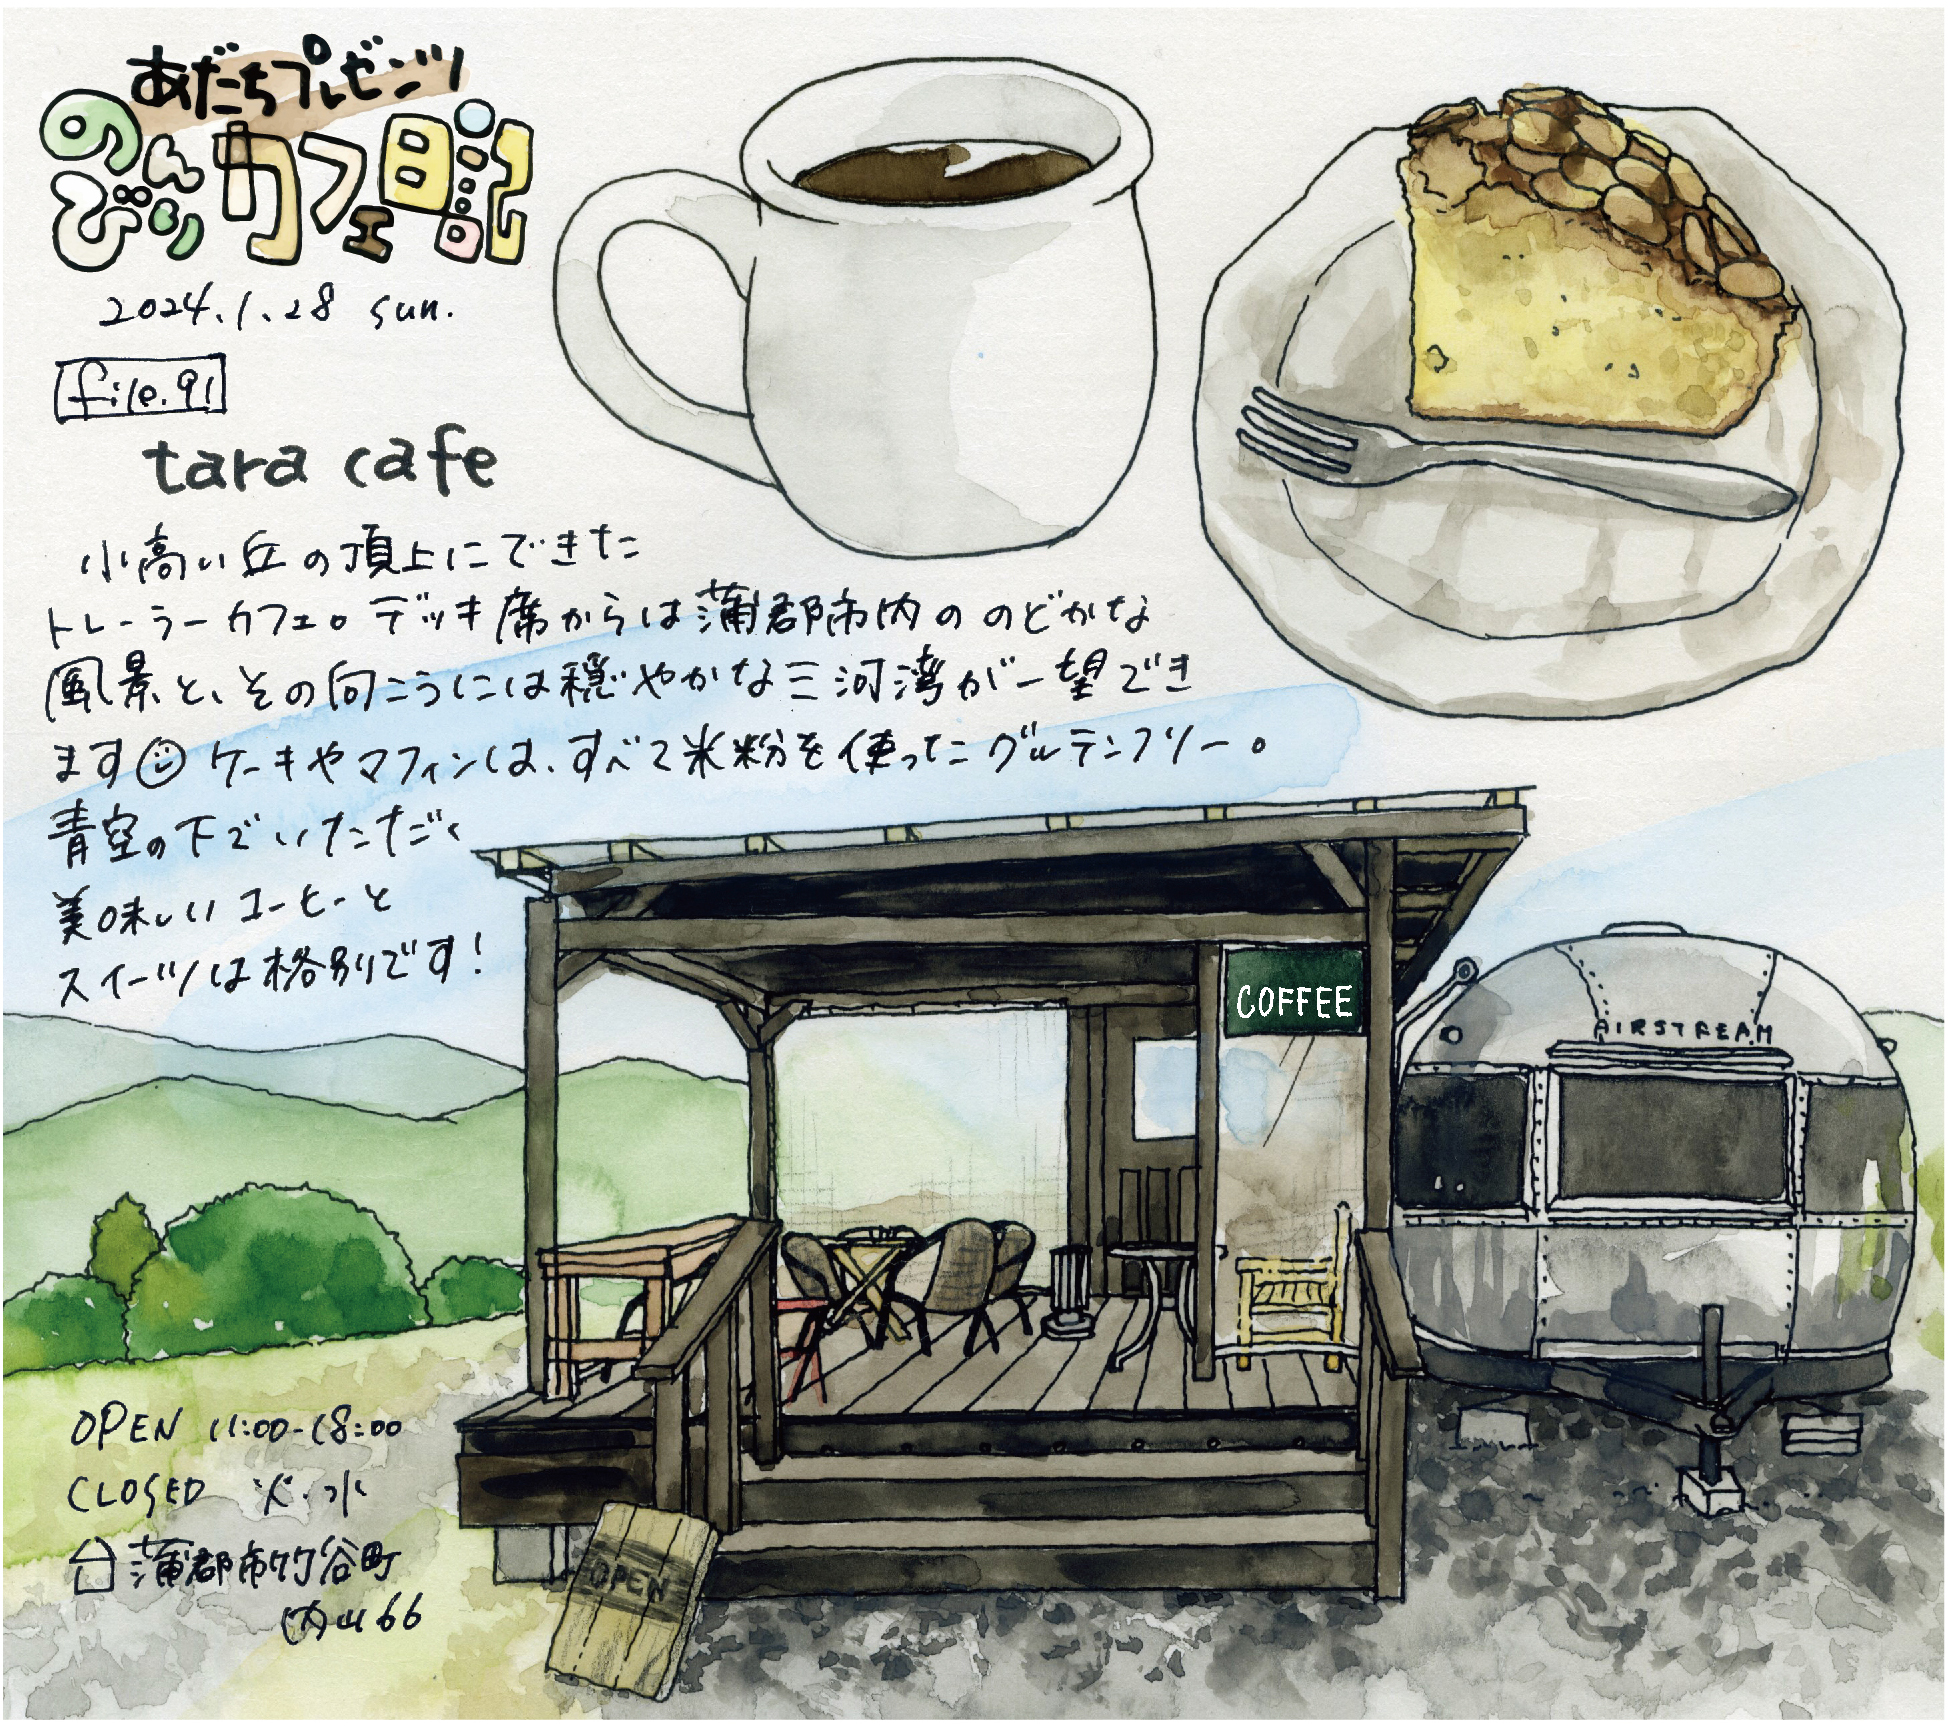 あだちプレゼンツ
のんびり カフェ日記
2024.1.28 sun.
file.91
tara cafe
小高い丘の頂上にできた
トレーラーカフェ。デッキ席からは蒲郡市内ののどかな
風景と、その向こうには穏やかな三河湾が一望でき
ます☺ケーキやマフィンは、すべて米粉を使ったグルテンフリー。
青空の下でいただく
美味しいコーヒーと
スイーツは格別です!
COFFEE
AIRSTREAM
OPEN 11:00-18:00
CLOSED 火・水
蒲郡市竹谷町
内山66
OPEN